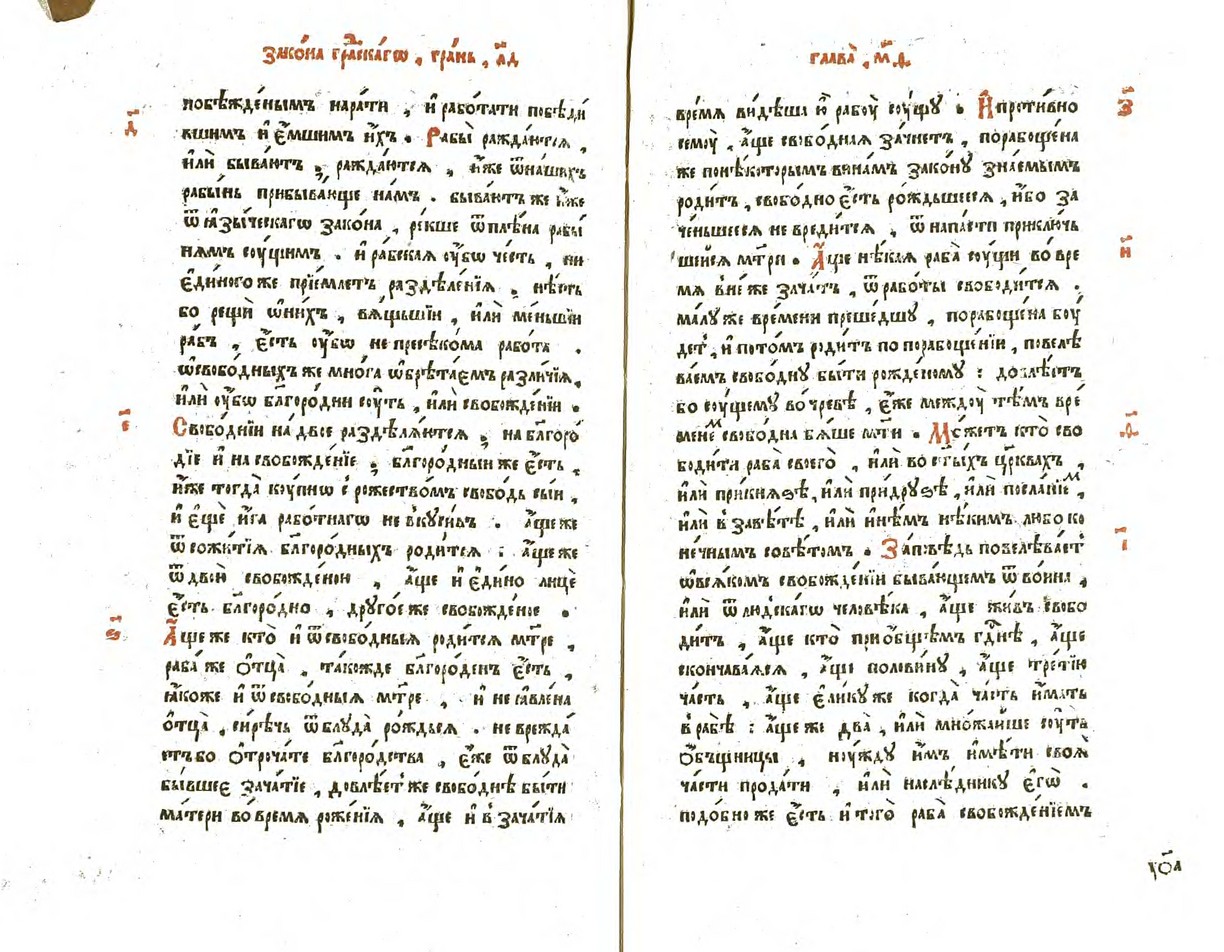 Зако́на гра́дскагѡ , гра́нь , л҃д
побѣжде́нымъ нарати , и҆ рабо́тати побѣди
вшимъ и҆ є҆́мшимъ и҆́хъ . Рабѝ ражда́ются ,
и҆лѝ быва́ютъ , ражда́ются , и҆́же ѿ на́шихъ
рабы́нь прибыва́юще на́мъ . быва́ютъ же и҆̀же
ѿ ꙗ҆зы́ческагѡ зако́на , ре́кше ѿ плѣ́на рабы́
ням̾ъ сꙋ́щимъ . и҆ ра́бская ᲂу҆́бѡ че́сть , ни
є҆ди́ного же прїе́млетъ раздѣле́нїя , нѣ́сть
бо рещѝ ѡ҆ ни́хъ , вѧ́щьшїи , и҆лѝ ме́ньшїи
ра́бъ , є҆́сть ᲂу҆́бѡ непресѣко́ма рабо́та .
ѡ҆ свобо́дныхъ же мно́га ѡ҆брѣта́емъ разли́чїя ,
и҆лѝ ᲂу҆́бѡ бл҃горо́дни сꙋ́ть , и҆лѝ свобожде́нїи .
д҃
є҃
Свобо́днїи на́ двое раздѣля́ются , на бл҃горо́
дїе и҆ на свобожде́нїе , бл҃горо́дныи же є҆́сть ,
и҆́же тогда̀ кꙋ́пнѡ с̾ рожество́мъ свобо́дь сы́и ,
и҆ є҆щѐ и҆́га рабо́тнагѡ не вкꙋси́въ . а҆́ще же
ѿ сожи́тїя бл҃горо́дныхъ роди́тся : а҆́ще же
ѿ двою̀ свобожде́ною , а҆́ще и҆ є҆ди́но лицѐ
є҆́сть бл҃горо́дно , дрꙋго́е же свобожде́ное .
ѕ҃
А҆́ще же кто̀ и҆ ѿ свобо́дныя роди́тся мт҃ре ,
раба́ же ѻ҆тца̀ , та́кожде бл҃горо́денъ є҆́сть ,
ꙗ҆́коже и҆ ѿ свобо́дныя мт҃ре , и҆ не ꙗ҆вле́на
ѻ҆тца̀ , си́рѣчь ѿ блꙋда̀ ро́ждься . не врежда́
етъ бо ѻ҆троча́те бл҃горо́дства , є҆́же ѿ блꙋда̀
бы́вшее зача́тїе , довлѣ́етъ же свобо́днѣ бы́ти
ма́тери во вре́мя роже́нїя , а҆́ще и҆ в̾ зача́тїя
глава̀ , м҃д
вре́мя ви́дѣша ю҆̀ рабо́ѵ сꙋ́щꙋ . И҆ проти́вно
з҃
семꙋ̀ , а҆́ще свобо́дная зачне́тъ , порабоще́на
же по нѣ́которымъ вина́мъ зако́нꙋ зна́емымъ
роди́тъ , свобо́дно є҆́сть ро́ждьшееся , и҆́бо за
че́ньшееся не вреди́тся , ѿ напа́сти приклю́чь
шейся мт҃ри . А҆́ще нѣ́кая раба̀ сꙋ́щи во вре
и҃
мя в̾ не́же зача́тъ , ѿ рабо́ты свободи́тся .
ма́лꙋ же вре́мени преше́дшꙋ , порабоще́на бꙋ́
детъ , и҆ пото́мъ роди́тъ по порабоще́нїи , повелѣ
ва́емъ свобо́днꙋ бы́ти рожде́номꙋ : довлѣ́етъ
бо сꙋ́щемꙋ во чре́вѣ , є҆́же междꙋ̀ тѣ́мъ вре́
менемъ свобо́дна бя́ше мт҃и . Мо́жетъ кто̀ сво
ѳ҃
боди́ти раба̀ своего̀ , и҆лѝ во ст҃ы́хъ цр҃квахъ ,
и҆лѝ при кня́зѣ , и҆лѝ при дрꙋ́зѣ , и҆лѝ посла́нїемъ ,
и҆лѝ в̾ завѣ́тѣ , и҆лѝ и҆нѣ́мъ нѣ́кимъ либо ко
не́чнымъ совѣ́томъ . За́повѣдь повелѣва́етъ
і҃
ѡ҆ вся́комъ свобожде́нїи быва́ющемъ ѿ во́ина ,
и҆лѝ ѿ людска́гѡ человѣ́ка , а҆́ще жи́въ свобо
ди́тъ , а҆́ще кто̀ при ѻ҆́бщемъ гд҃нѣ , а҆́ще
сконча́ваяся , а҆́ще полови́нꙋ , а҆́ще тре́тїю
ча́сть , а҆́ще є҆ли́кꙋ же когда̀ ча́сть и҆́мать
в̾ рабѣ̀ : а҆́ще же два̀ , и҆лѝ мно́жайше сꙋ́ть
ѻ҆́бъщницы , нꙋ́ждꙋ и҆́мъ и҆мѣ́ти своя̀
ча́сти прода́ти , и҆лѝ наслѣ́дникꙋ є҆гѡ̀ .
подо́бно же є҆́сть и҆ того̀ раба̀ свобожде́нїемъ
уо҃а